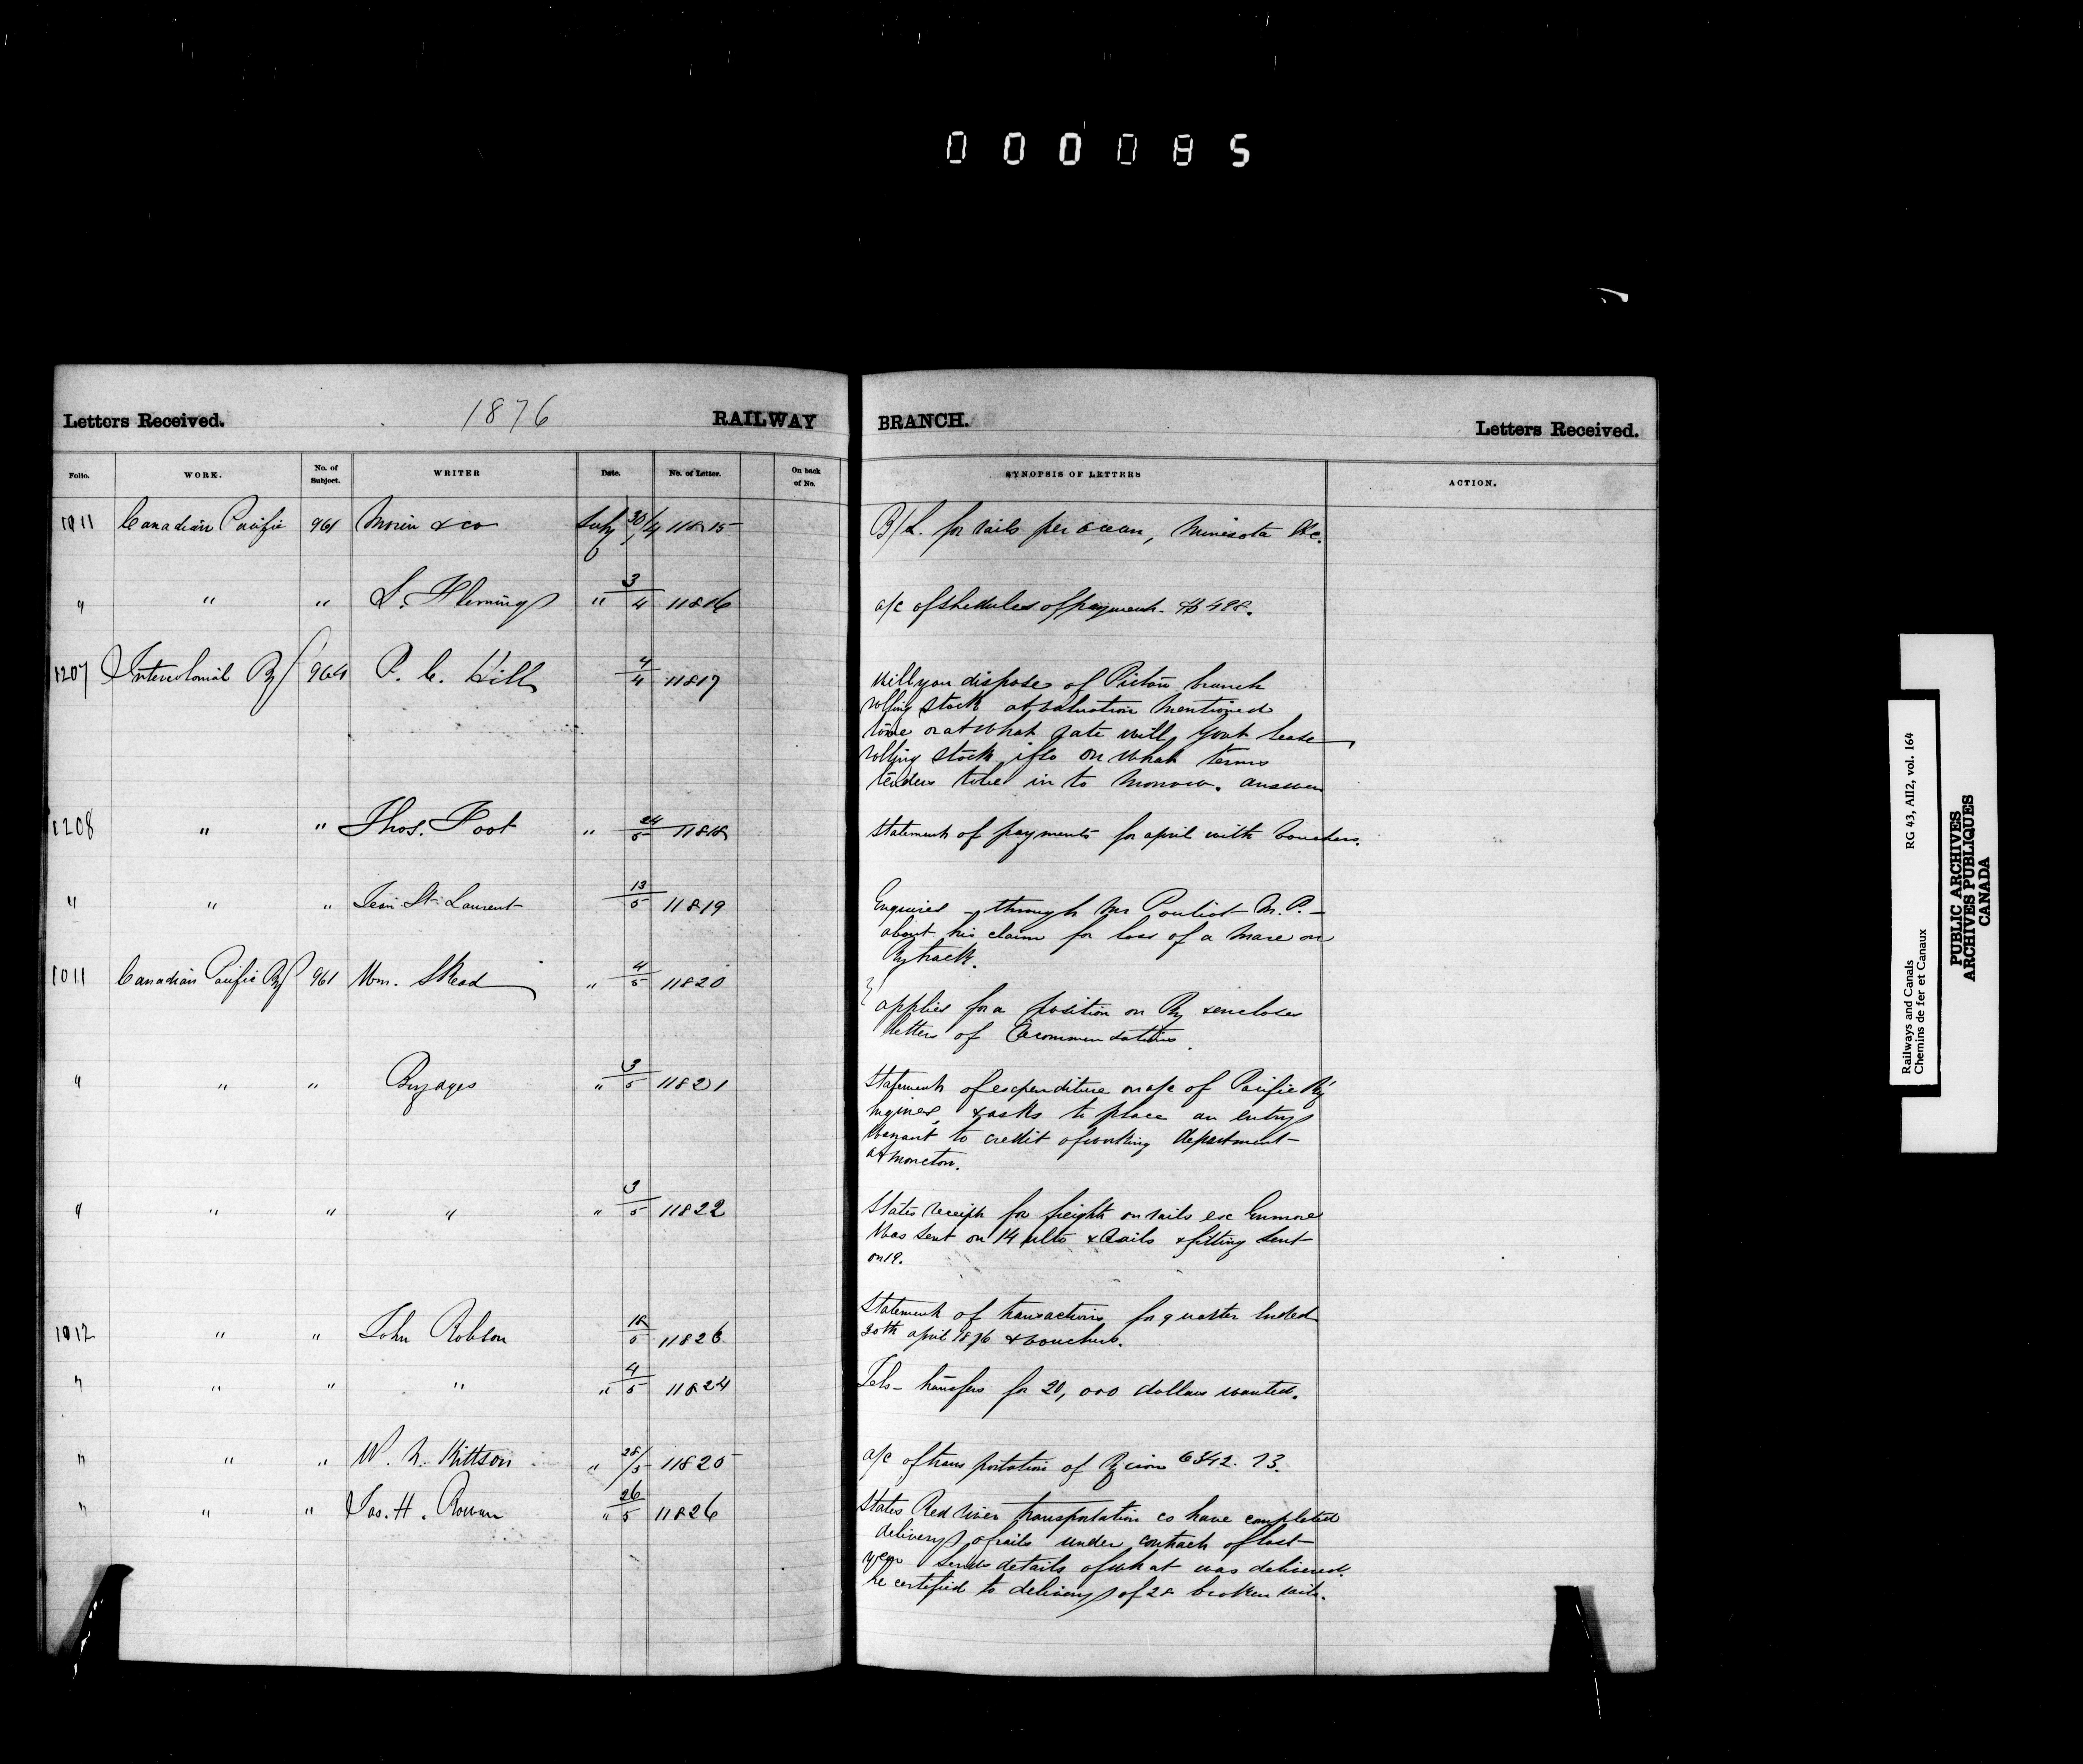 000085
Letters Received. 1876 RAILWAY BRANCH. Letters Received.
Folio. WORK. No. of Subject. WRITER Date. No. of Letter. On back of No. SYNOPSIS OF LETTERS ACTION.
1011 Canadian Pacific 961 Morin & co 30/4 11815 B/L. for rails per ocean, Minisota &c.
" " " S. Fleming " 3/4 11816 a/c of shedules of payment. $498.
1207 Intercolonial Ry 964 P. C. Hill 4/4 11817 Will you dispose of Pictou branch
rolling stock at valuation mentioned
or at what rate will Govt lease
rolling stock, if so on what terms
tenders to be in to morrow. answer
1208 " " Thos. Foot " 24/5 11818 Statement of payments for april with vouchers.
" " " St. Laurent 13/5 11819 Enquires - through Mr Pouliot M. P. -
about his claim for loss of a mare on
Ry track.
1011 Canadian Pacific Ry 961 Wm. Skead " 4/5 11820 applies for a position on Ry & encloses
letters of Recommendation.
" " " Brydges " 3/5 11821 Statement of expenditure on a/c of Pacific Ry
engines, & asks to place an entry
warrant to credit of working department
at moncton.
" " " " " 3/5 11822 States receipt for freight on rails exc Enmore
was sent on 14 ulto & Rails & fitting sent
on 19.
1012 " " John Robson 18/5 11823 Statement of transactions for quarter ended
30th april 1876 & vouchers.
" " " " " 4/5 11824 Tels - transfers for 20,000 dollars wanted.
" " " W. N. Kittson " 28/5 11825 a/c of transportation of Ry iron 6342. 73.
" " " Jas. H. Rowan " 26/5 11826 States Red river transportation co have completed
delivery of rails under contract of last
year sends details of what was delivered.
he certified to delivery of 28 broken rails.
Railways and Canals RG 43, AII2, vol. 164
Chemins de fer et Canaux
PUBLIC ARCHIVES
ARCHIVES PUBLIQUES
CANADA